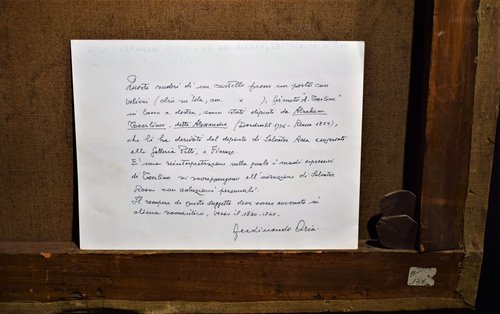 Questi ruderi d'un castello presso un porto con
velieri (olio su tela, cm. x ), firmato "A. Teerlinx"
in basso a destra, sono stati dipinti da Abraham
Teerlinx, detto Alessandro (Dordrecht 1776 - Roma 1857),
che li ha derivati dal dipinto di Salvator Rosa conservato
alla Galleria Pitti, a Firenze.
E' una reinterpretazione nella quale i modi espressivi
di Teerlinx si sovrappongono all'invenzione di Salvator
Rosa con soluzioni personali.
Il recupero di questo soggetto deve essere avvenuto in
clima romantico, verso il 1830-1840.
Ferdinando Arisi
137